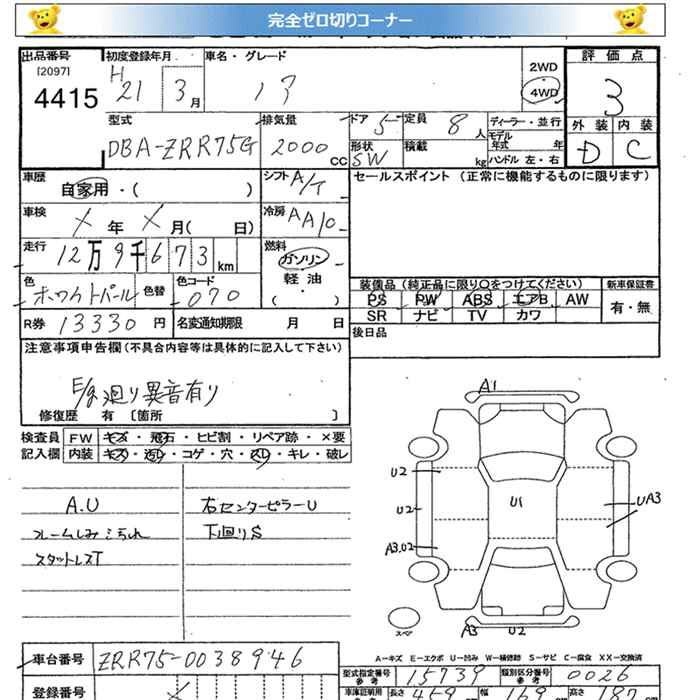 完全ゼロ切りコーナー
出品番号 初度登録年月 車名・グレード 2WD 評価点
[2097] H
4415 21 3月 4WD 3
型式 排気量 ドア 5 定員 8人 ディーラー・並行 外装 内装
モデル年式 年
DBA-ZRR75G 2000cc 形状 SW 積載 kg ハンドル 左・右 D C
車歴 自家用・( ) シフト A/T セールスポイント (正常に機能するものに限ります)
車検 × 年 × 月( 日) 冷房 AAC
走行 12万9千673km 燃料 ガソリン
軽油
・( )
色 ホワイトパール 色替 色コード 070
装備品 (純正品に限り○をつけてください) 新車保証書
PS PW ABS エアB AW 有・無
SR ナビ TV カワ
R券 13330円 名変通知期限 月 日 後日品
注意事項申告欄(不具合内容等は具体的に記入して下さい)
E/g廻り異音有り
修復歴 有 〔箇所 〕
検査員 FW キズ・飛石・ヒビ割・リペア跡・×要
記入欄 内装 キズ・汚レ・コゲ・穴・スレ・キレ・破レ
A.U 右センターピラーU
下廻りS
スタットレスT
A1
U2
U1
U2
UA3
A3.U2
スペア
A3 U2
A=キズ E=エクボ U=凹み W=補修跡 S=サビ C=腐食 XX=交換済
車台番号 ZRR75-0038946
登録番号
型式指定番号 15739 類別区分番号 0026
参考 参考
車庫証明用 長さ 459 幅 169 高さ 187